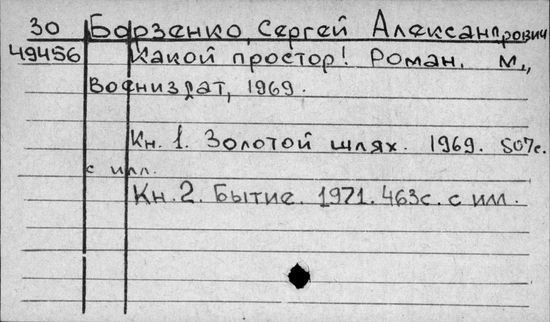 30 Борзенко, Сергей Александрович
49456 Какой простор! Роман. М.,
Воениздат, 1969.
Кн. 1. Золотой шлях. 1969. 507с.
с илл.
Кн. 2. Бытие. 1971. 463с. с илл.